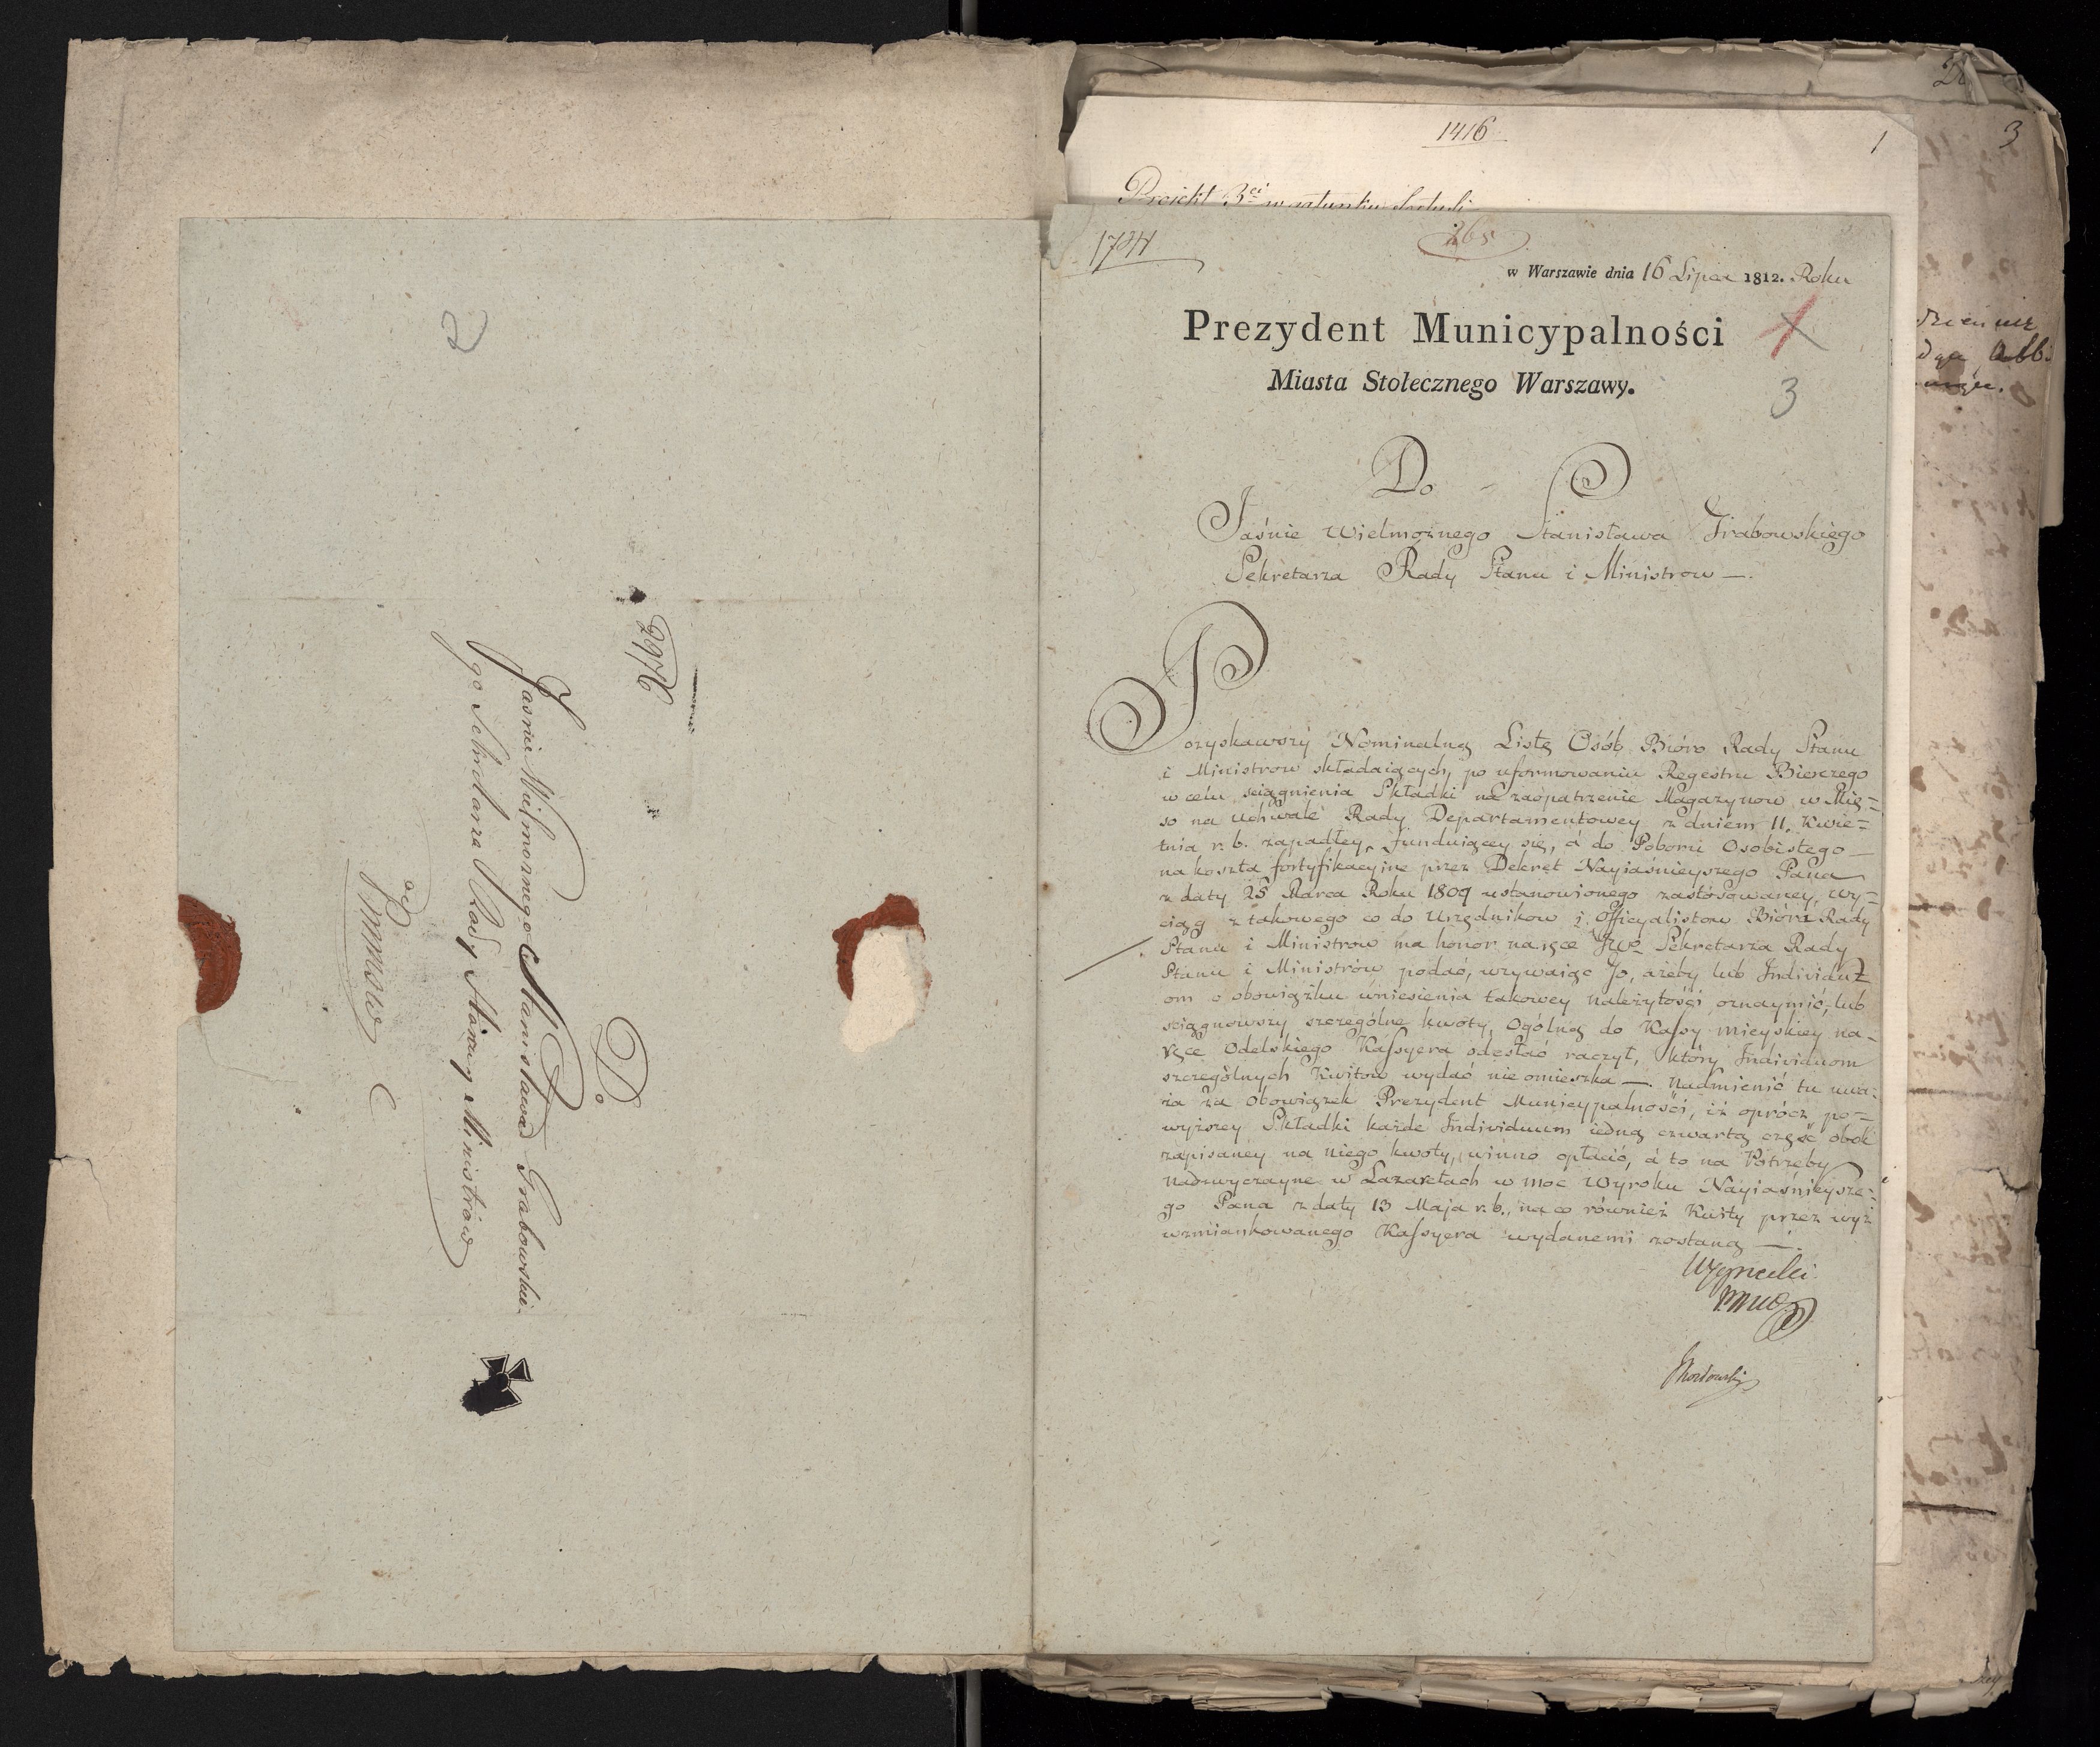 2
2976
Do
Jasnie Wielmoznego Stanisława Grabowskie-
go Sekretarza Rady Stanu y Ministrów
od
PMMSW
1416
1
3
Projekt 3ci w gatunku
1724
265
w Warszawie dnia 16 Lipca 1812. Roku
Prezydent Municypalności
Miasta Stołecznego Warszawy.
1
3
Do
Jaśnie Wielmożnego Stanisława Grabowskiego
Sekretarza Rady Stanu i Ministrow —.
Pozyskawszy Nominalną Listę Osób Bióro Rady Stanu
i Ministrow składaiących, po uformowaniu Regestru Bierczego
w celu sciągnienia Składki na zaopatrzenie Magazynow w Mię=
so na Uchwale Rady Departamentowey z dniem 11. Kwie=
tnia r. b. zapadłey, funduiącey się, á do Poboru Osobistego —
na koszta fortyfikacyine przez Dekret Nayiaśnieyszego Pana
z daty 25 Marca Roku 1809 ustanowionego zastósowaney, wy=
ciąg z takowego co do Urzędnikow i Officyalistow Bióra Rady
Stanu i Ministrow ma honor na ręce JWo Sekretarza Rady
Stanu i Ministrów podać, wzywaiąc Go, ażeby lub Individu
om o obowiązku wniesienia takowey należytości oznaymić, lub
sciągnowszy szczególne kwoty, Ogólną do Kassy Mieyskiey na-
ręce Odelskiego Kassyera odesłać raczył, który Individuom
szczególnych Kwitow wydać nie omieszka —. Nadmienić tu uwa-
ża za Obowiązek Prezydent Municypalności, iż oprócz po=
wyższey Składki każde Individuum iedną czwartą część obok
zapisaney na niego kwoty, winno opłacić, á to na Potrzeby
nadzwyczayne w Lazaretach w moc Wyroku Nayiaśnieysze=
go Pana z daty 13 Maja r. b., na co również Kwity przez wyż
wzmiankowanego Kassyera wydanemi zostaną —.